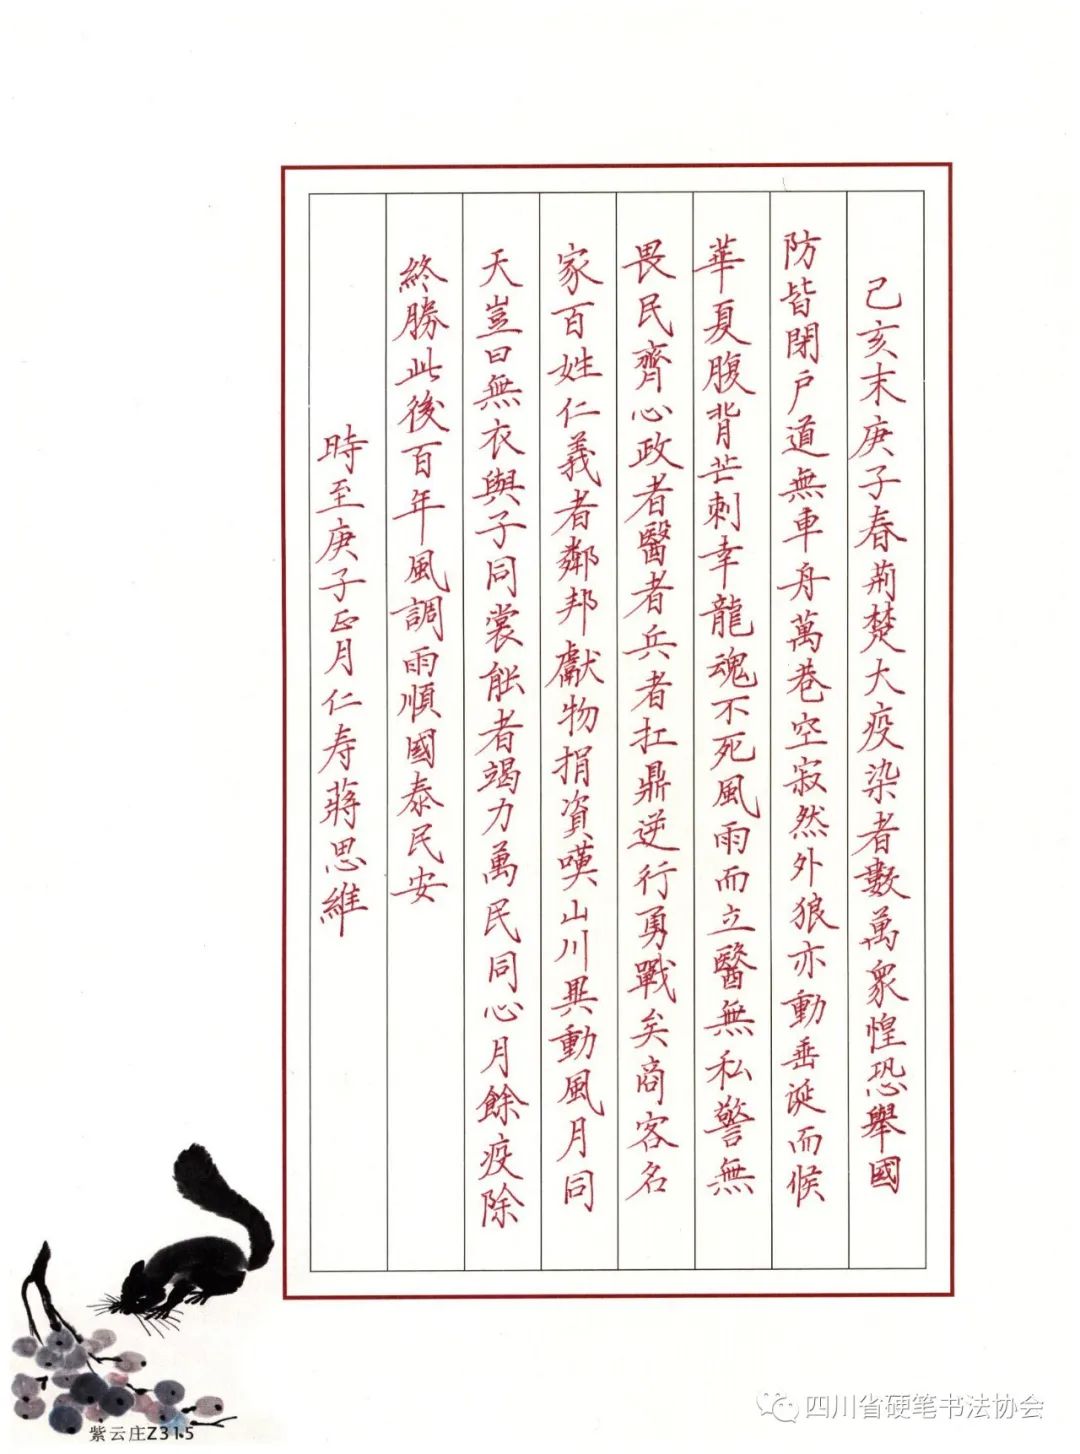 己亥末庚子春荊楚大疫染者數萬眾惶恐舉國
防皆閉戶道無車舟萬巷空寂然外狼亦動垂涎而候
華夏腹背芒刺幸龍魂不死風雨而立醫無私警無
畏民齊心政者醫者兵者扛鼎逆行勇戰矣商客名
家百姓仁義者鄰邦獻物捐資嘆山川異動風月同
天豈曰無衣與子同裳能者竭力萬民同心月餘疫除
終勝此後百年風調雨順國泰民安
時至庚子正月仁寿蔣思維
紫云庄Z315
四川省硬笔书法协会